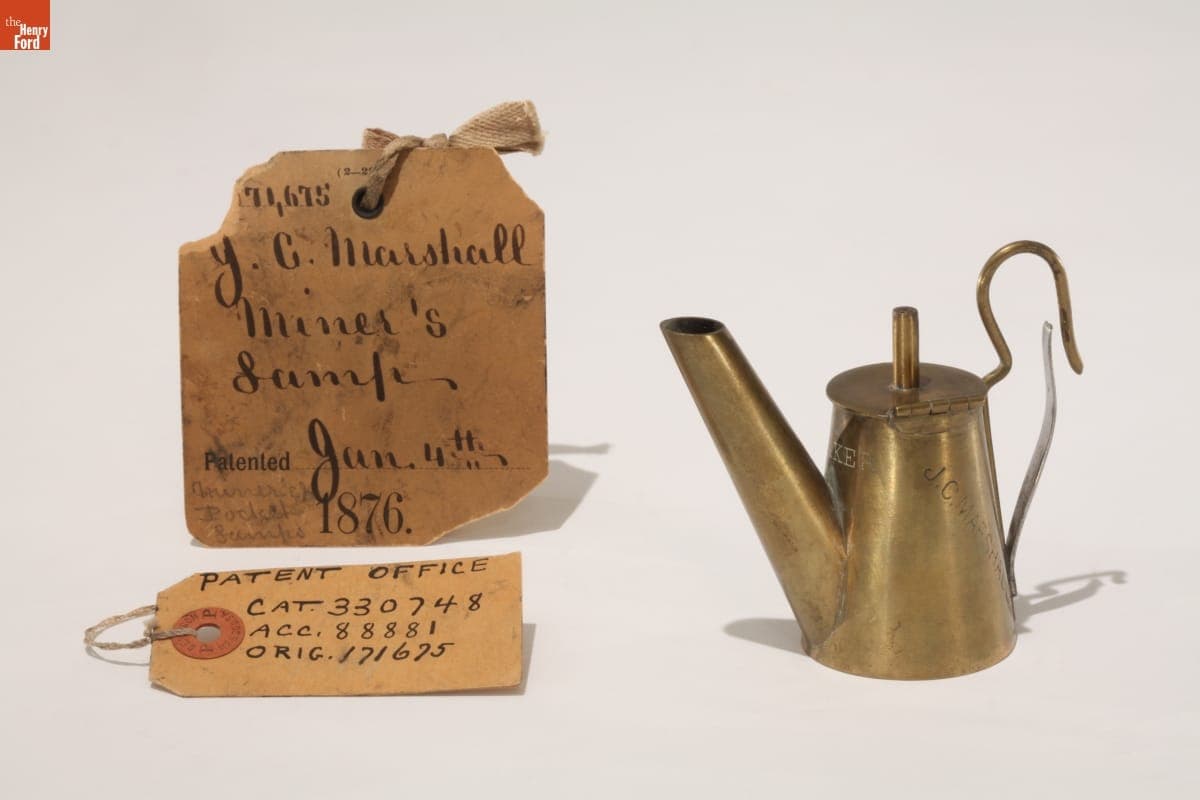 the
Henry
Ford
(2—2
171,675
J. C. Marshall
Miner's
Lamp
Patented Jan. 4th
1876.
Pocket
Lamps
PATENT OFFICE
CAT. 330748
ACC. 88881
ORIG. 171675
KER
J.C. MARSH